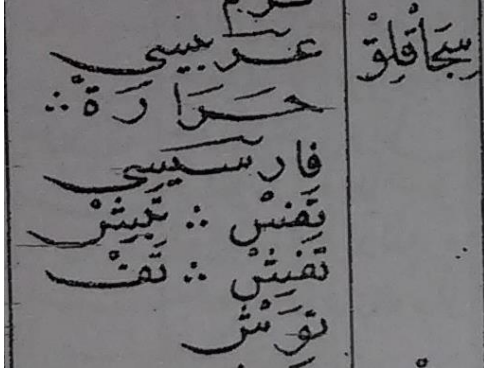 سِجَاْقْلِقْ
عَرَبِيسِي
حَرَارَةْ ∴
فَارسِيسِي
تَفْسْ ∴ تَبِشْ
تَفِشْ ∴ تَفْ
تَوَشْ